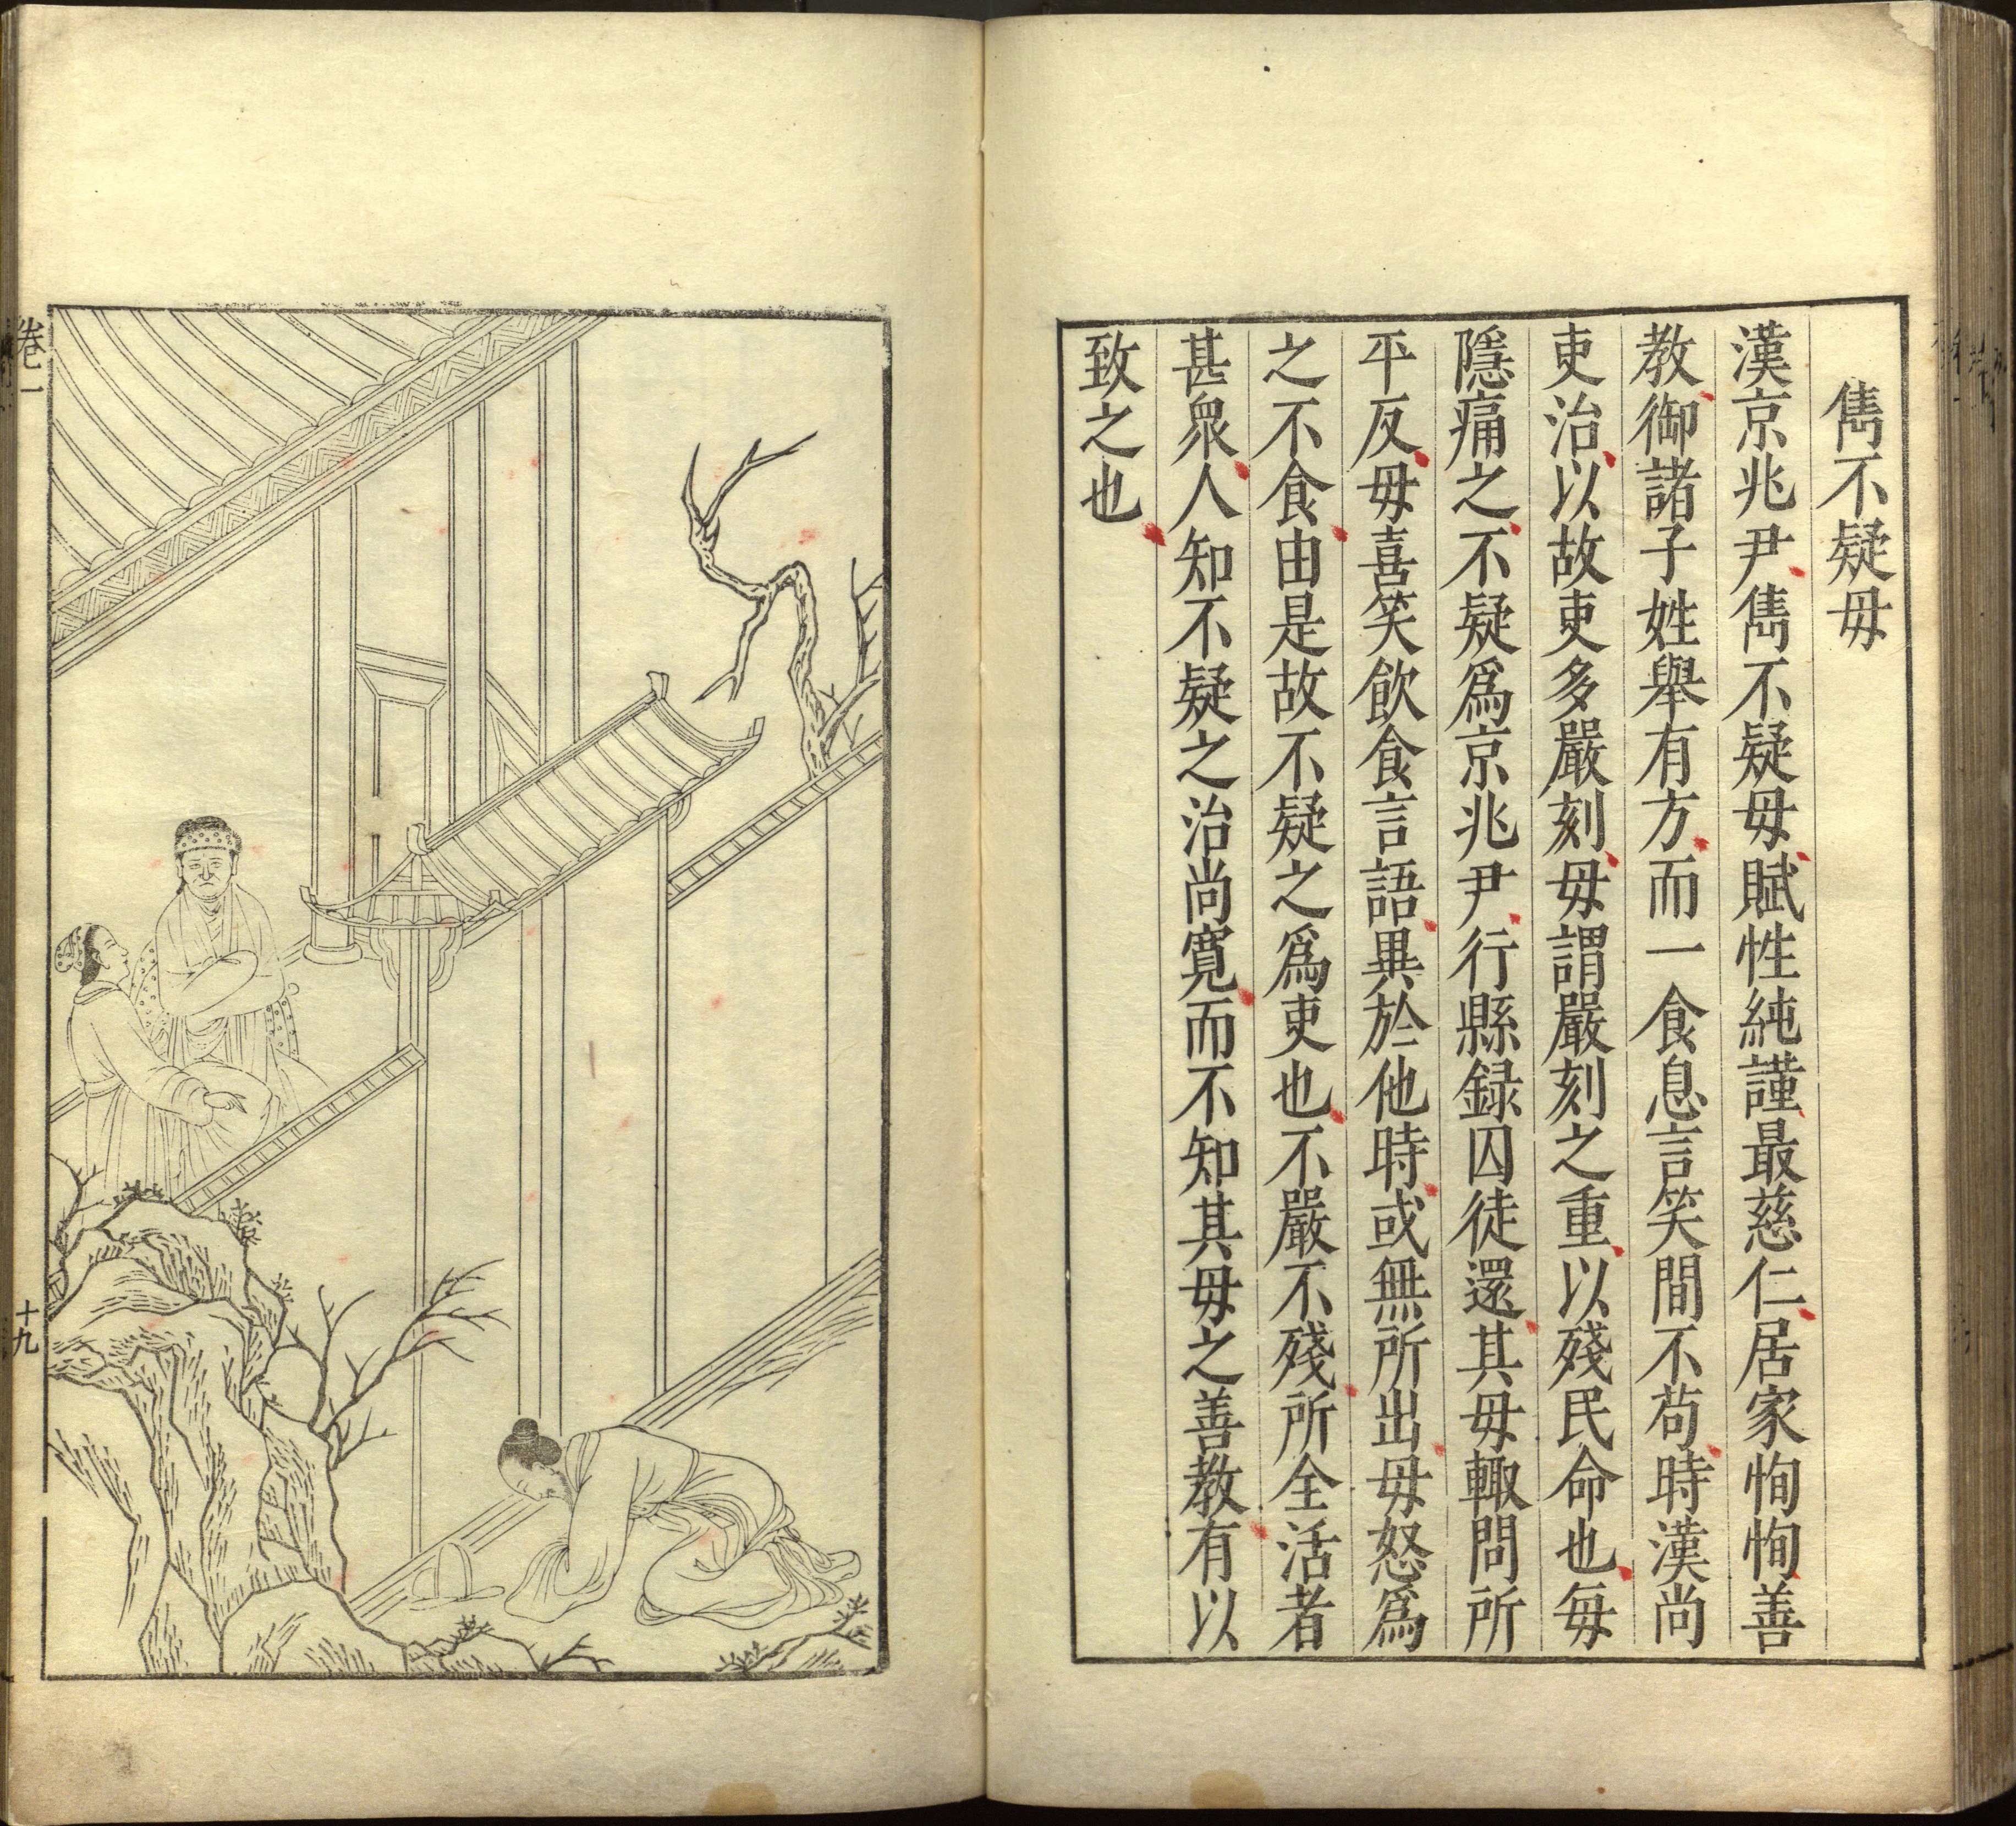 雋不疑母
漢京兆尹雋不疑母賦性純謹最慈仁居家恂恂善
教御諸子姓舉有方而一食息言笑間不苟時漢尚
吏治以故吏多嚴刻母謂嚴刻之重以殘民命也每
隱痛之不疑爲京兆尹行縣録囚徒還其母輙問所
平反母喜笑飲食言語異於他時或無所出母怒爲
之不食由是故不疑之爲吏也不嚴不殘所全活者
甚衆人知不疑之治尚寬而不知其母之善教有以
致之也
卷一
十九